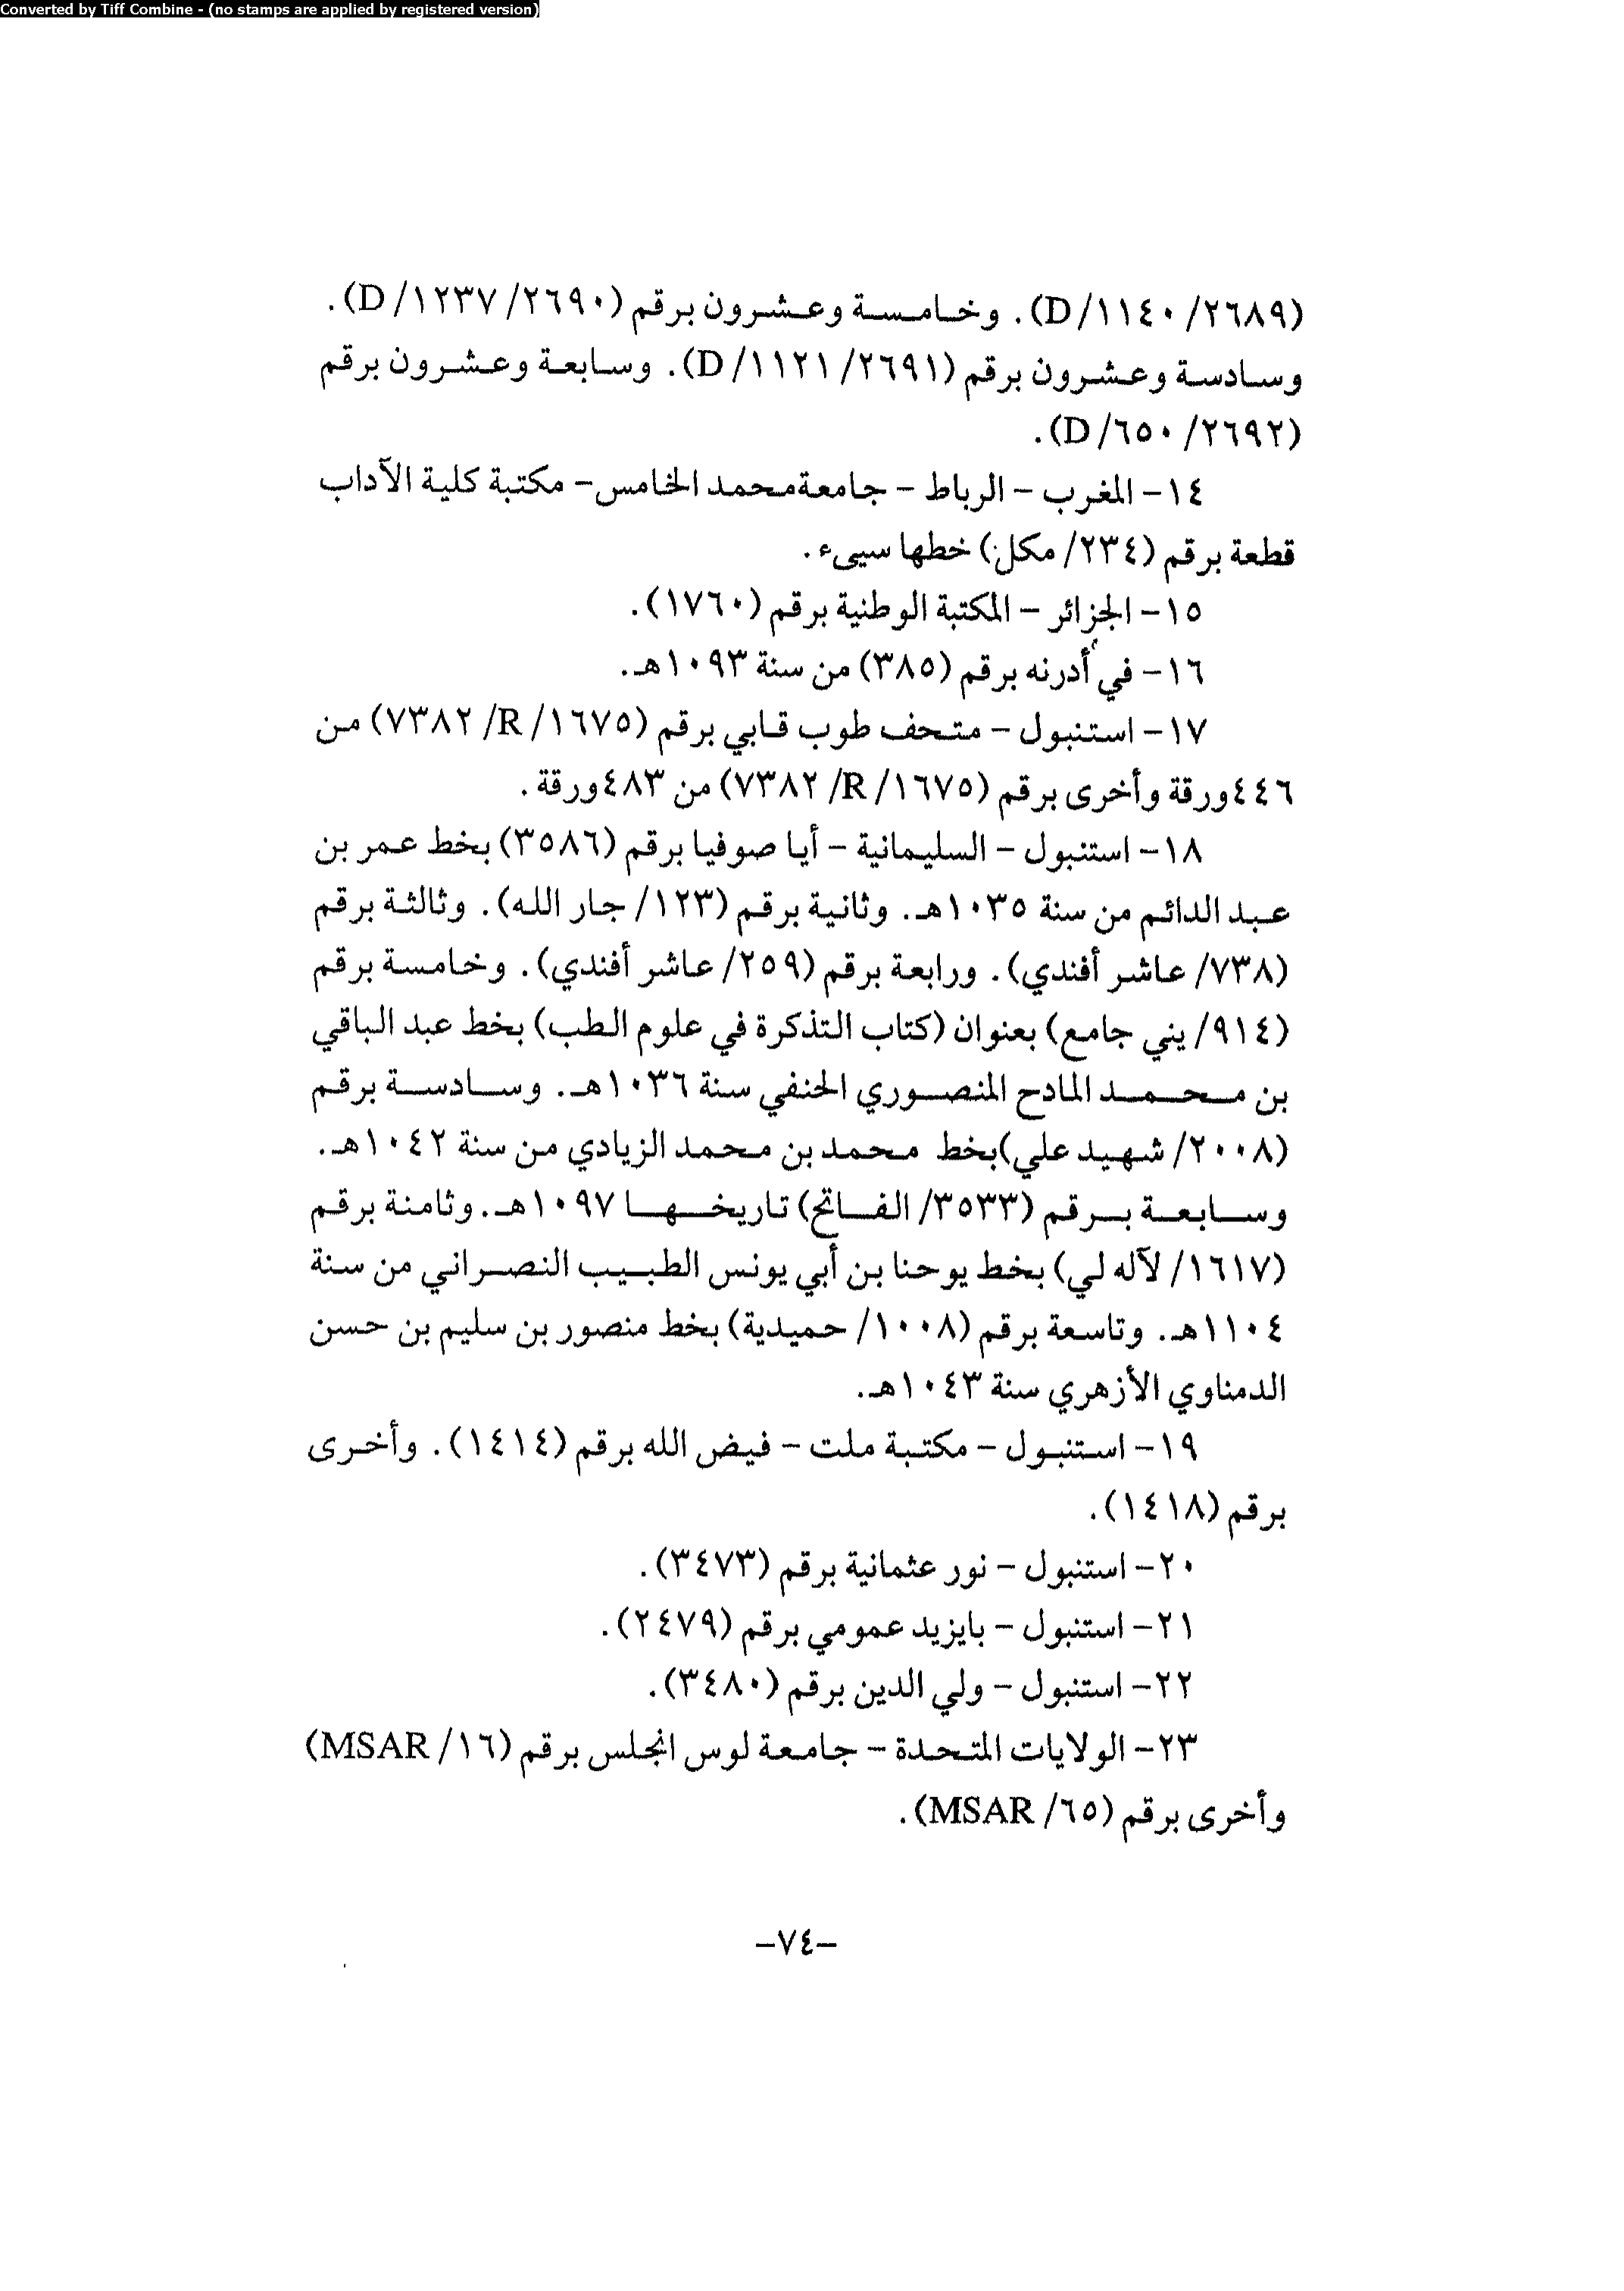 Converted by Tiff Combine - (no stamps are applied by registered version)
(٢٦٨٩/ ١١٤٠/D). وخامسة وعشرون برقم (٢٦٩٠/ ١٢٣٧/D).
وسادسة وعشرون برقم (٢٦٩١/ ١١٢١/D). وسابعة وعشرون برقم
(٢٦٩٢/ ٦٥٠/D).
١٤- المغرب - الرباط - جامعة محمد الخامس- مكتبة كلية الآداب
قطعة برقم (٢٣٤/ مكل) خطها سيىء.
١٥- الجزائر - المكتبة الوطنية برقم (١٧٦٠).
١٦- في أدرنه برقم (٣٨٥) من سنة ١٠٩٣هـ.
١٧- استنبول - متحف طوب قابي برقم (١٦٧٥/ R/ ٧٣٨٢) من
٤٤٦ورقة وأخرى برقم (١٦٧٥/ R/ ٧٣٨٢) من ٤٨٣ورقة.
١٨- استنبول - السليمانية - أيا صوفيا برقم (٣٥٨٦) بخط عمر بن
عبد الدائم من سنة ١٠٣٥هـ. وثانية برقم (١٢٣/ جار الله). وثالثة برقم
(٧٣٨/ عاشر أفندي). ورابعة برقم (٢٥٩/ عاشر أفندي). وخامسة برقم
(٩١٤/ يني جامع) بعنوان (كتاب التذكرة في علوم الطب) بخط عبد الباقي
بن محمد المادح المنصوري الحنفي سنة ١٠٣٦هـ. وسادسة برقم
(٢٠٠٨/ شهيد علي)بخط محمد بن محمد الزيادي من سنة ١٠٤٢هـ.
وسابعة برقم (٣٥٣٣/ الفاتح) تاريخها ١٠٩٧هـ. وثامنة برقم
(١٦١٧/ لآله لي) بخط يوحنا بن أبي يونس الطبيب النصراني من سنة
١١٠٤هـ. وتاسعة برقم (١٠٠٨/ حميدية) بخط منصور بن سليم بن حسن
الدمناوي الأزهري سنة ١٠٤٣هـ.
١٩- استنبول - مكتبة ملت - فيض الله برقم (١٤١٤). وأخرى
برقم (١٤١٨).
٢٠- استنبول - نور عثمانية برقم (٣٤٧٣).
٢١- استنبول - بايزيد عمومي برقم (٢٤٧٩).
٢٢- استنبول - ولي الدين برقم (٣٤٨٠).
٢٣- الولايات المتحدة - جامعة لوس انجلس برقم (١٦/ MSAR)
وأخرى برقم (٦٥/ MSAR).
-٧٤-